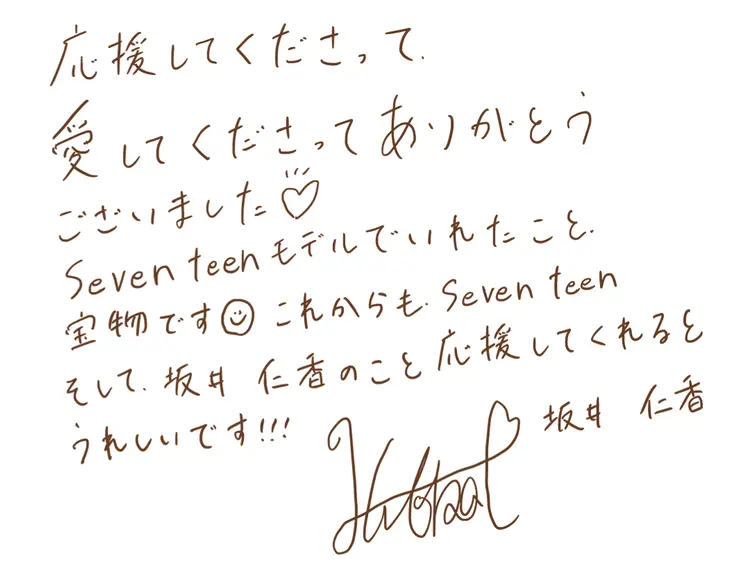 応援してくださって、
愛してくださってありがとう
ございました♡
Seven teenモデルでいれたこと、
宝物です☺これからも、Seven teen
そして、坂井 仁香のこと応援してくれると
うれしいです!!!
坂井 仁香